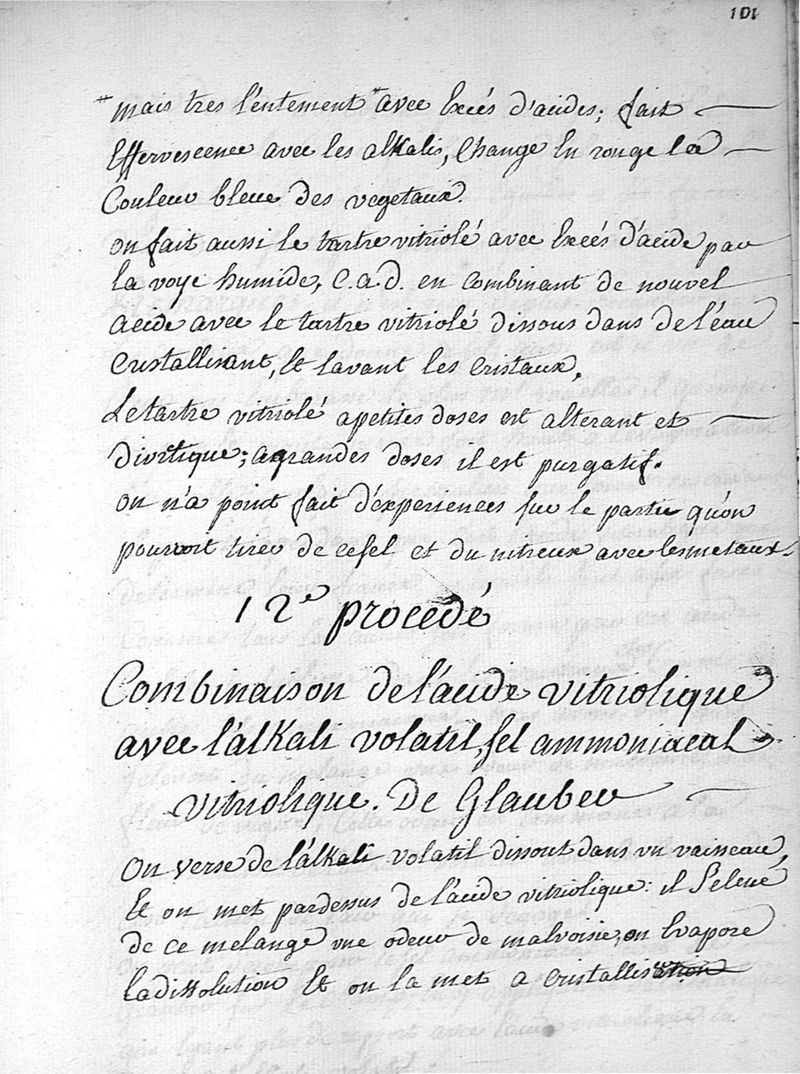 101
mais tres l'entement avec Excés d'acides; fait
Effervescence avec les alkalis, Change En rouge la
Couleur bleue des vegetaux.
on fait aussi le tartre vitriolé avec Excés d'acide par
la voye humide, C.a.d. en Combinant de nouvel
acide avec le tartre vitriolé dissous dans de l'eau
Cristallisant, Et lavant les Cristaux,
Le tartre vitriolé a petites doses est alterant et
divrtique; a grandes doses il est purgatif.
on n'a point fait d'experiences sur le partie qu'on
pourroit tirer de ce sel et du nitreux avec les metaux.
12e procedé
Combinaison de l'acide vitriolique
avec l'alkali volatil, sel ammoniacal
vitriolique. De Glauber
On verse de l'alkali volatil dissout dans un vaisseau,
Et on met pardessus de l'acide vitriolique: il s'eleve
de ce melange une odeur de malvoisie, on Evapore
la dissolution Et on la met a cristallisation